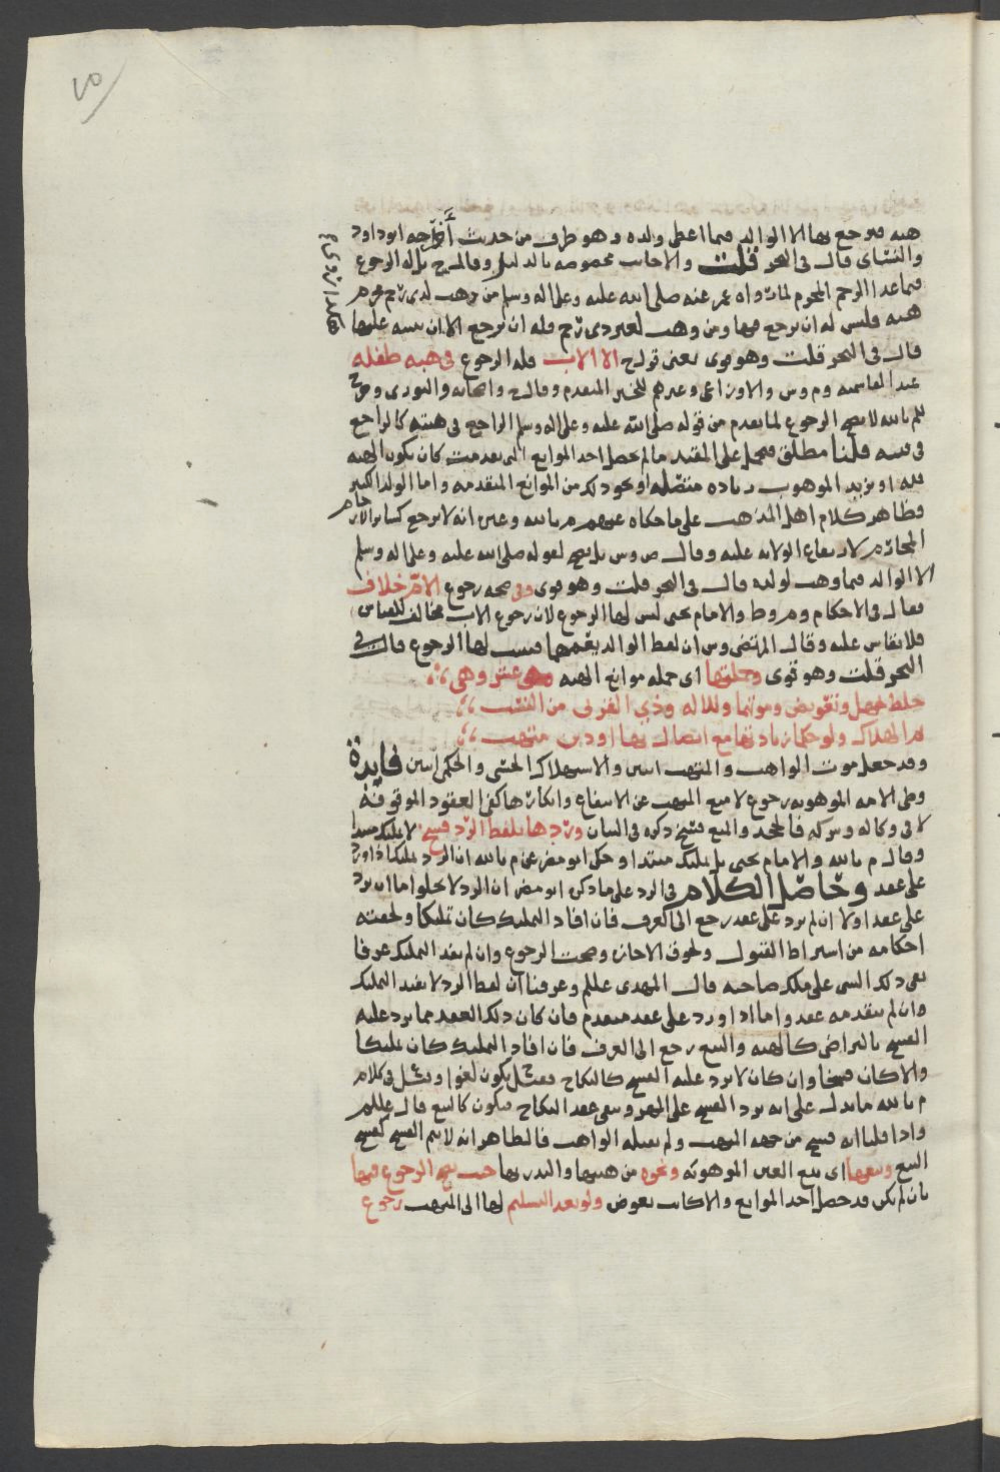 ٧٥
هبه فيرجع بها الا الوالد فيما اعطى ولده وهو طرف من حديث أخرجه ابو داود
والنسائي قال في البحر قلت والاجانب مخصوصه بالدليل وقال بل له الرجوع
فيما عدا الرحم المحرم لما رواه عنه صلى الله عليه وعلى اله وسلم من وهب لذي رحم محرم
هبه فليس له ان يرجع فيها ومن وهب لغير ذي رحم فله ان يرجع الا ان يثيبه عليها
قال في البحر قلت وهو قوي يعني قول ح الا الاب فله الرجوع في هبه طفله
عند القاسميه وم وش والاوزاعي وغيرهم للخبر المتقدم وقال ح واصحابه والثوري
بالله لا يصح الرجوع لما تقدم من قوله صلى الله عليه وعلى اله وسلم الراجع في هبته كالراجع
في قيئه قلنا مطلق فيحمل على المقيد ما لم يحصل احد الموانع التي تقدمت كان يكون الهبه
لله او يزيد الموهوب زياده متصله او نحو ذلك من الموانع المتقدمه واما الولد الكبير
وظاهر كلام اهل المذهب على ما حكاه عنهم م بالله وغيره انه لا يرجع كسائر الارحام
المحارم لارتفاع الولايه عليه وقال ص وش بل يصح لقوله صلى الله عليه وعلى اله وسلم
الا الوالد فيما وهب لولده قال في البحر قلت وهو قوي وفي صحه رجوع الام خلاف
فقال في الاحكام وم وط والامام يحيى ليس لها الرجوع لان رجوع الاب مخالف للقياس
فلا يقاس عليه وقال المرتضى وش ان لفظ الوالد يعمهما فيثبت لها الرجوع قال في
البحر قلت وهو قوي وجملتها اي جمله موانع الهبه عشر وهي
خلط وتعويض وموتهما ولله وذي القربى من النسب
ثم الهلاك ولو حكما زيادتها مع اتصال بها او دين متهب
وقد جعل موت الواهب والمتهب اثنين والاستهلاك الحسي والحكمي اثنين فايدة
وطي الامه الموهوبه رجوع لا منع المتهب عن الانتفاع وانكارها كفي العقود الموقوفة
لا في وكاله وشركه فالجحد والمنع فسخ ذكره في البيان وردها بلفظ الرد فسخ لا تمليك مبتدا
وقال م بالله والامام يحيى بل تمليك مبتدا وحكى ابو مضر عن م بالله ان الرد تمليك اذا ورد
على عقد وحاصل الكلام في الرد على ما ذكره ابو مضر ان الرد لا يخلوا اما ان يرد
على عقد اولا ان لم يرد على عقد رجع الى العرف فان افاد التمليك كان تمليكا ولحقته
احكامه من اشتراط القبول ولحوق الاجازه وصحت الرجوع وان لم يفد التمليك عرفا
بقي ذلك الشي على ملك صاحبه قال المهدي عللم وعرفنا ان لفظ الرد لا يفيد التمليك
وان لم يتقدمه عقد واما اذا ورد على عقد متقدم فان كان ذلك العقد مما يرد عليه
الفسخ بالتراضي كالهبه والبيع رجع الى العرف فان افاد التمليك كان تمليكا
والا كان فسخا وان كان لا يرد عليه الفسخ كالنكاح فقيل يكون لغوا وقيل في كلام
م بالله ما يدل على انه يرد الفسخ على المهر ويبقى عقد النكاح فيكون كالبيع قال عللم
واذا قلنا انه فسخ من جهه المتهب ولم يقبله الواهب فالظاهر انه لا يتم الفسخ كفسخ
البيع وبيعها اي بيع العين الموهوبه ونحوه من هبتها والنذر بها حيث يصح الرجوع فيها
بان لم يكن قد حصل احد الموانع والا كانت بعوض ولو بعد التسليم لها الى المتهب رجوع